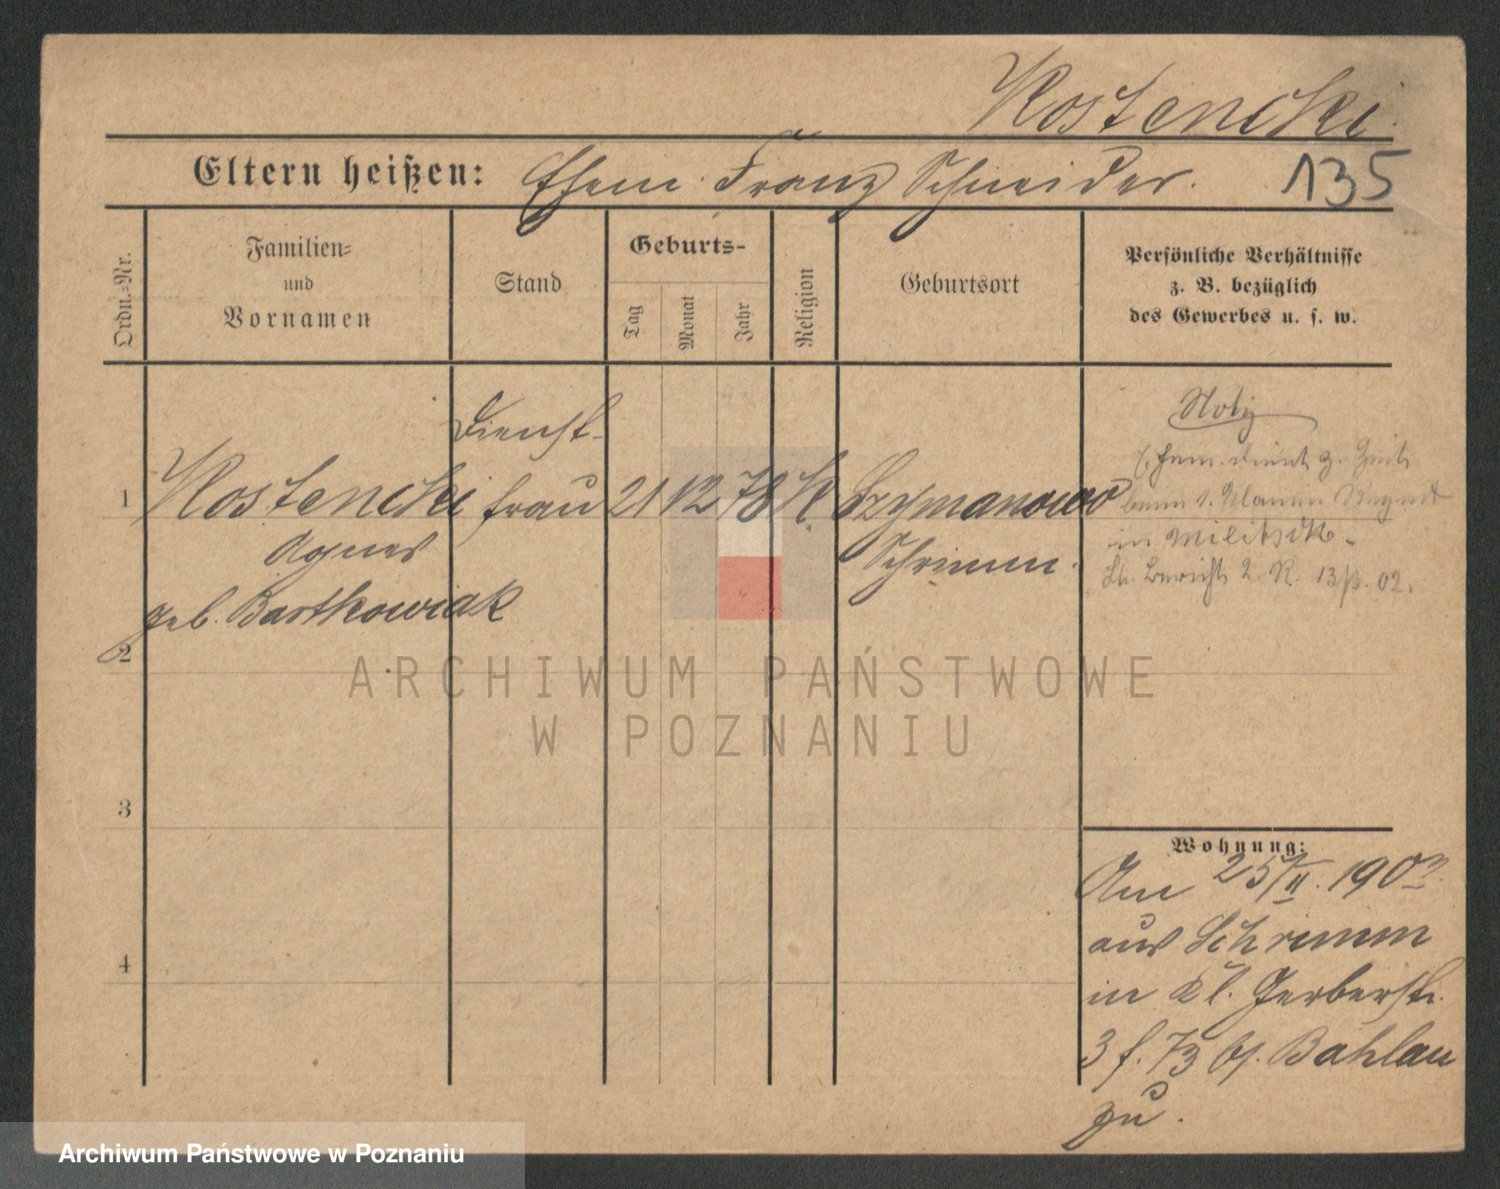 Kostencki
Eltern heißen: Ehem. Franz Schneider.
135
Ordn.-Nr.
Familien-
und
Vornamen
Stand
Geburts-
Tag
Monat
Jahr
Religion
Geburtsort
Persönliche Verhältnisse
z. B. bezüglich
des Gewerbes u. s. w.
1
Kostencki
Agnes
geb. Bartkowiak
Dienst-
frau
21 12 78 K
Szymanowo
Schrimm.
Notiz
Ehem. dient z. Zeit
beim 1. Ulanen Regmt
in Militsch.
Bericht 2. R. 13/3. 02.
2
3
4
Wohnung:
Am 25/II. 1902
aus Schrimm
in Kl. Gerberstr.
3 f. 73 bj. Bahlau
zu.
ARCHIWUM PAŃSTWOWE
W POZNANIU
Archiwum Państwowe w Poznaniu